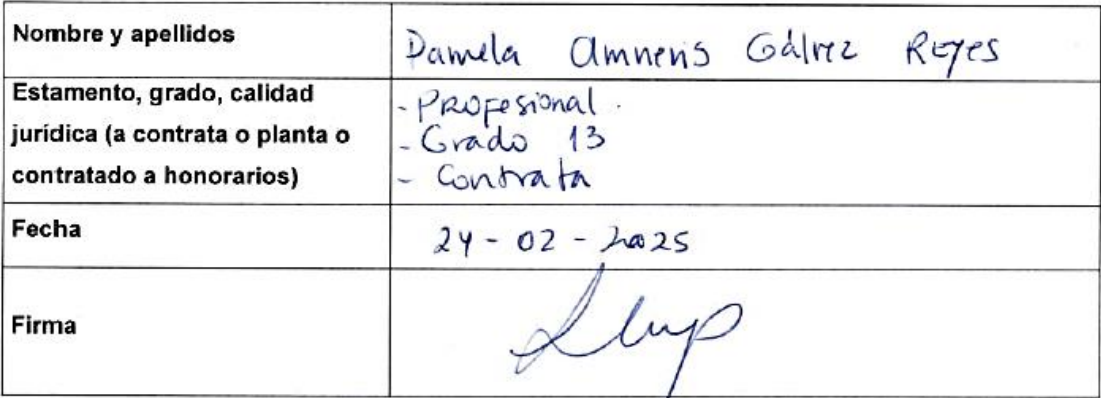 Nombre y apellidos
Pamela Amneris Gálvez Reyes
Estamento, grado, calidad
jurídica (a contrata o planta o
contratado a honorarios)
- Profesional.
- Grado 13
- Contrata
Fecha
24-02-2025
Firma